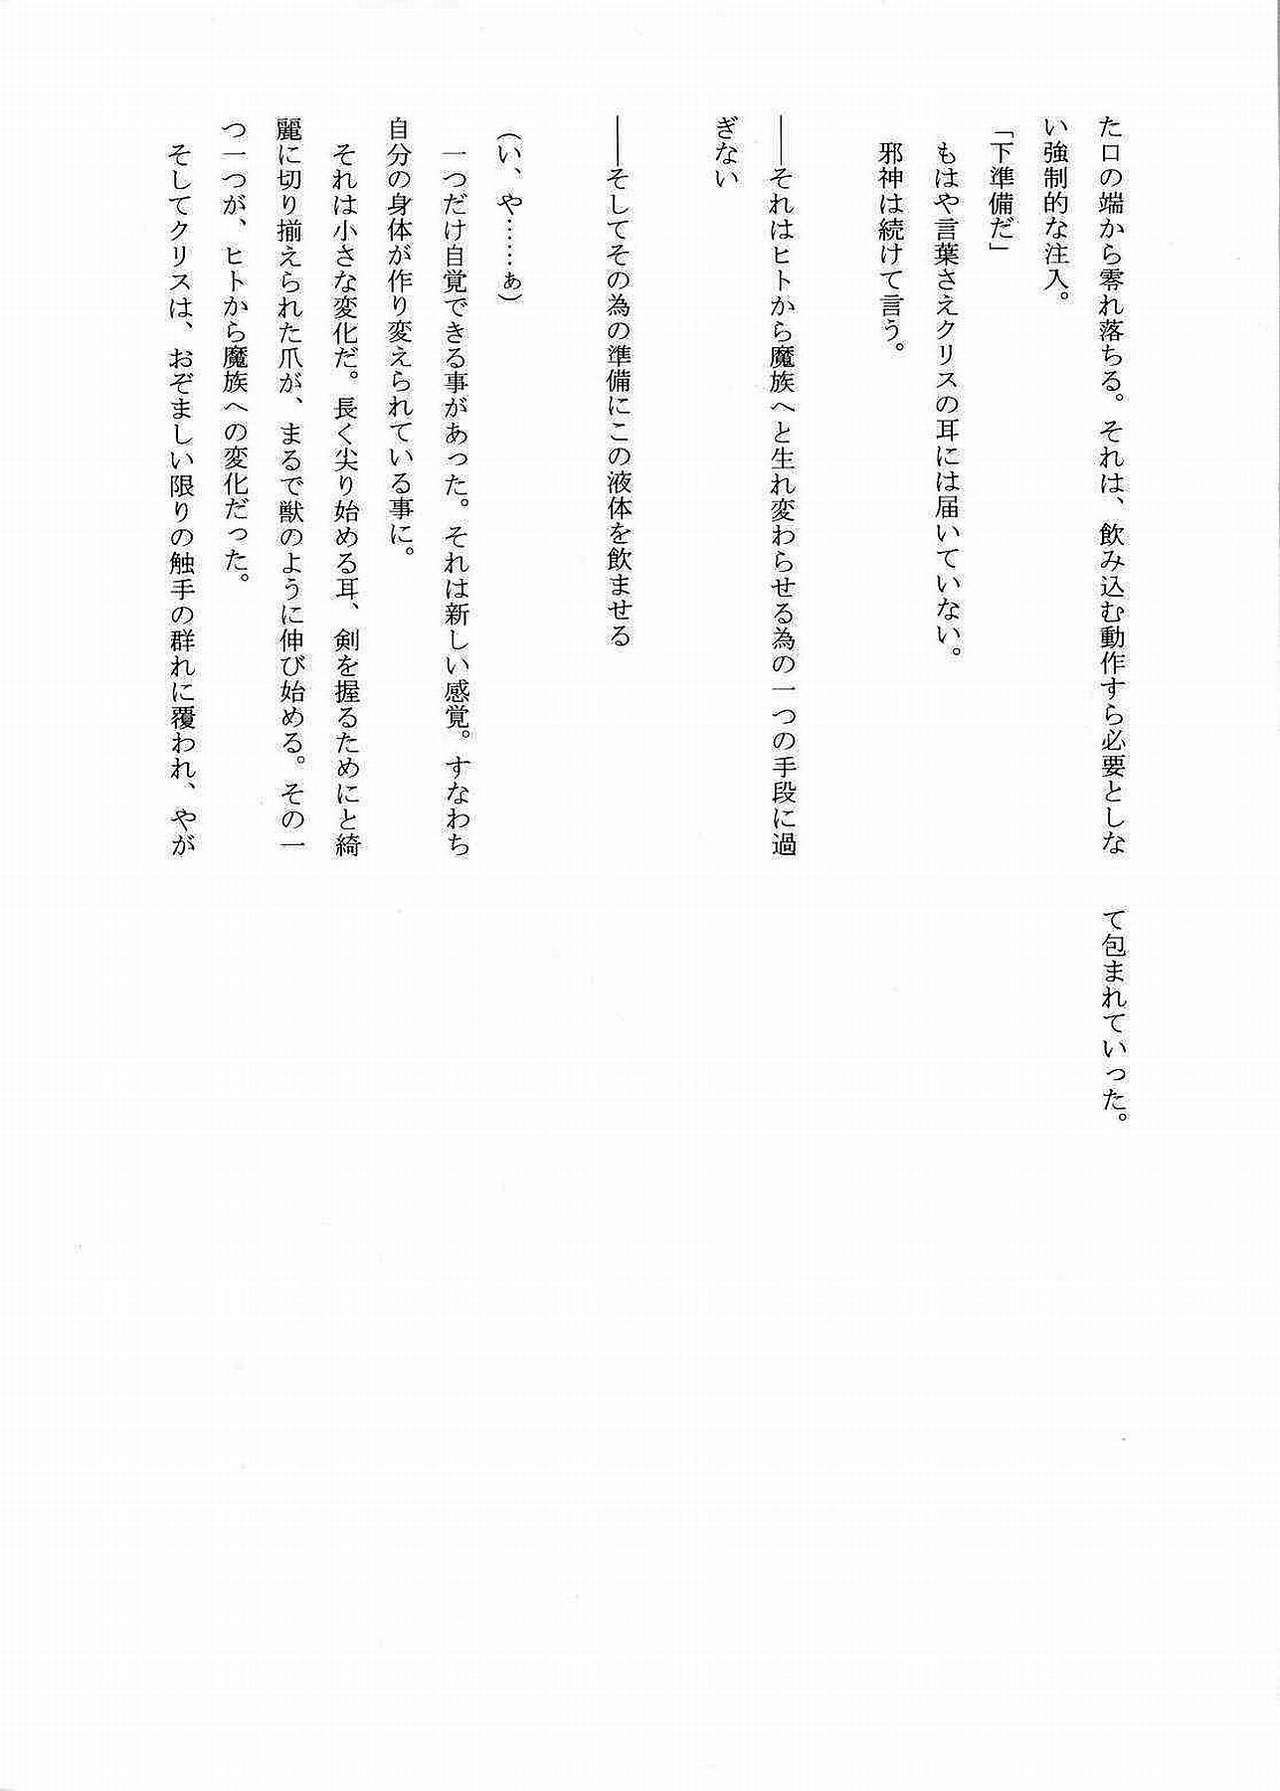 た口の端から零れ落ちる。それは、飲み込む動作すら必要としな
い強制的な注入。
「下準備だ」
もはや言葉さえクリスの耳には届いていない。
邪神は続けて言う。
――それはヒトから魔族へと生れ変わらせる為の一つの手段に過
ぎない
――そしてその為の準備にこの液体を飲ませる
（い、や……ぁ）
一つだけ自覚できる事があった。それは新しい感覚。すなわち
自分の身体が作り変えられている事に。
それは小さな変化だ。長く尖り始める耳、剣を握るためにと綺
麗に切り揃えられた爪が、まるで獣のように伸び始める。その一
つ一つが、ヒトから魔族への変化だった。
そしてクリスは、おぞましい限りの触手の群れに覆われ、やが
て包まれていった。